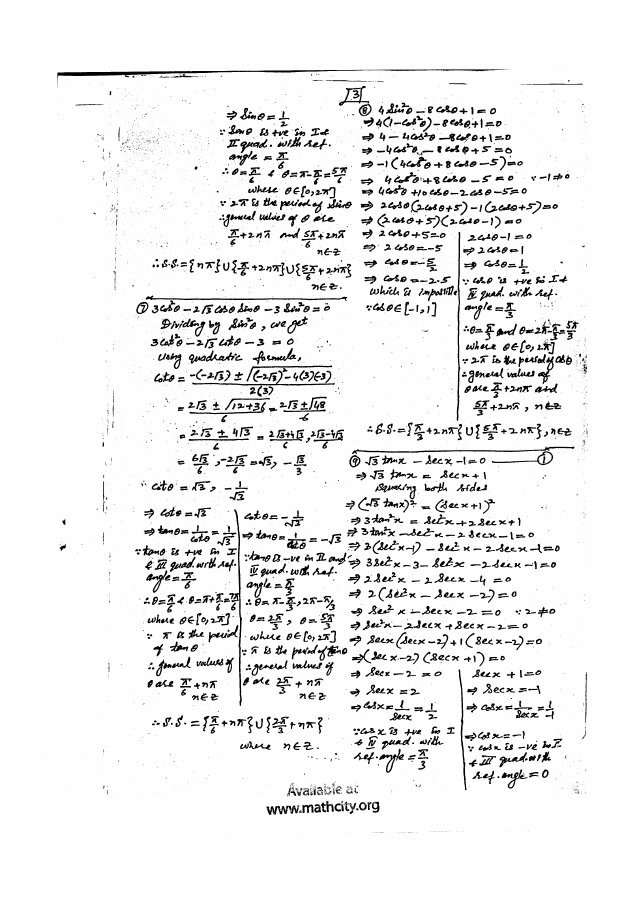 3
⇒ Sinθ = 1/2
∵ Sinθ is +ve in I &
II quad. with ref.
angle = π/6
∴ θ = π/6 & θ = π - π/6 = 5π/6
where θ ∈ [0, 2π]
∵ 2π is the period of Sinθ
∴ general values of θ are
π/6 + 2nπ and 5π/6 + 2nπ
n ∈ Z
∴ S.S. = {nπ} U {π/6 + 2nπ} U {5π/6 + 2nπ}
n ∈ Z.
⑦ 3cos²θ - 2√3 cosθ sinθ - 3 sin²θ = 0
Dividing by Sin²θ, we get
3cot²θ - 2√3 cotθ - 3 = 0
Using quadratic formula,
cotθ = -(-2√3) ± √(-2√3)² - 4(3)(-3) / 2(3)
= 2√3 ± √12+36 / 6 = 2√3 ± √48 / 6
= 2√3 ± 4√3 / 6 = 2√3+4√3 / 6, 2√3-4√3 / 6
= 6√3/6, -2√3/6 = √3, -√3/3
∴ cotθ = √3, -1/√3
⇒ cotθ = √3
⇒ tanθ = 1/cotθ = 1/√3
∵ tanθ is +ve in I
& III quad. with ref.
angle = π/6
∴ θ = π/6 & θ = π + π/6 = 7π/6
where θ ∈ [0, 2π]
∵ π is the period
of tanθ
∴ general values of
θ are π/6 + nπ
n ∈ Z
cotθ = -1/√3
⇒ tanθ = 1/cotθ = -√3
∵ tanθ is -ve in II and
IV quad. with ref.
angle = π/3
∴ θ = π - π/3, 2π - π/3
θ = 2π/3, θ = 5π/3
where θ ∈ [0, 2π]
∵ π is the period of tanθ
∴ general values of
θ are 2π/3 + nπ
n ∈ Z
∴ S.S. = {π/6 + nπ} U {2π/3 + nπ}
where n ∈ Z.
⑧ 4 Sin²θ - 8 cosθ + 1 = 0
⇒ 4(1 - cos²θ) - 8cosθ + 1 = 0
⇒ 4 - 4cos²θ - 8cosθ + 1 = 0
⇒ -4cos²θ - 8cosθ + 5 = 0
⇒ -1(4cos²θ + 8cosθ - 5) = 0
⇒ 4cos²θ + 8cosθ - 5 = 0 ∵ -1 ≠ 0
⇒ 4cos²θ + 10cosθ - 2cosθ - 5 = 0
⇒ 2cosθ(2cosθ+5) - 1(2cosθ+5) = 0
⇒ (2cosθ+5)(2cosθ-1) = 0
⇒ 2cosθ + 5 = 0
⇒ 2cosθ = -5
⇒ cosθ = -5/2
⇒ cosθ = -2.5
which is impossible
∵ cosθ ∈ [-1, 1]
2cosθ - 1 = 0
⇒ 2cosθ = 1
⇒ cosθ = 1/2
∵ cosθ is +ve in I &
IV quad. with ref.
angle = π/3
∴ θ = π/3 and θ = 2π - π/3 = 5π/3
where θ ∈ [0, 2π]
∵ 2π is the period of cosθ
∴ general values of
θ are π/3 + 2nπ and
5π/3 + 2nπ, n ∈ Z
∴ S.S. = {π/3 + 2nπ} U {5π/3 + 2nπ}, n ∈ Z
⑨ √3 tanx - secx - 1 = 0 — ①
⇒ √3 tanx = secx + 1
Squaring both sides
⇒ (√3 tanx)² = (secx + 1)²
⇒ 3tan²x = sec²x + 2secx + 1
⇒ 3tan²x - sec²x - 2secx - 1 = 0
⇒ 3(sec²x - 1) - sec²x - 2secx - 1 = 0
⇒ 3sec²x - 3 - sec²x - 2secx - 1 = 0
⇒ 2sec²x - 2secx - 4 = 0
⇒ 2(sec²x - secx - 2) = 0
⇒ sec²x - secx - 2 = 0 ∵ 2 ≠ 0
⇒ sec²x - 2secx + secx - 2 = 0
⇒ secx(secx - 2) + 1(secx - 2) = 0
⇒ (secx - 2)(secx + 1) = 0
⇒ secx - 2 = 0
⇒ secx = 2
⇒ cosx = 1/secx = 1/2
∵ cosx is +ve in I
& IV quad. with
ref. angle = π/3
secx + 1 = 0
⇒ secx = -1
⇒ cosx = 1/secx = 1/-1
⇒ cosx = -1
∵ cosx is -ve in II
& III quad. with
ref. angle = 0
Available at
www.mathcity.org